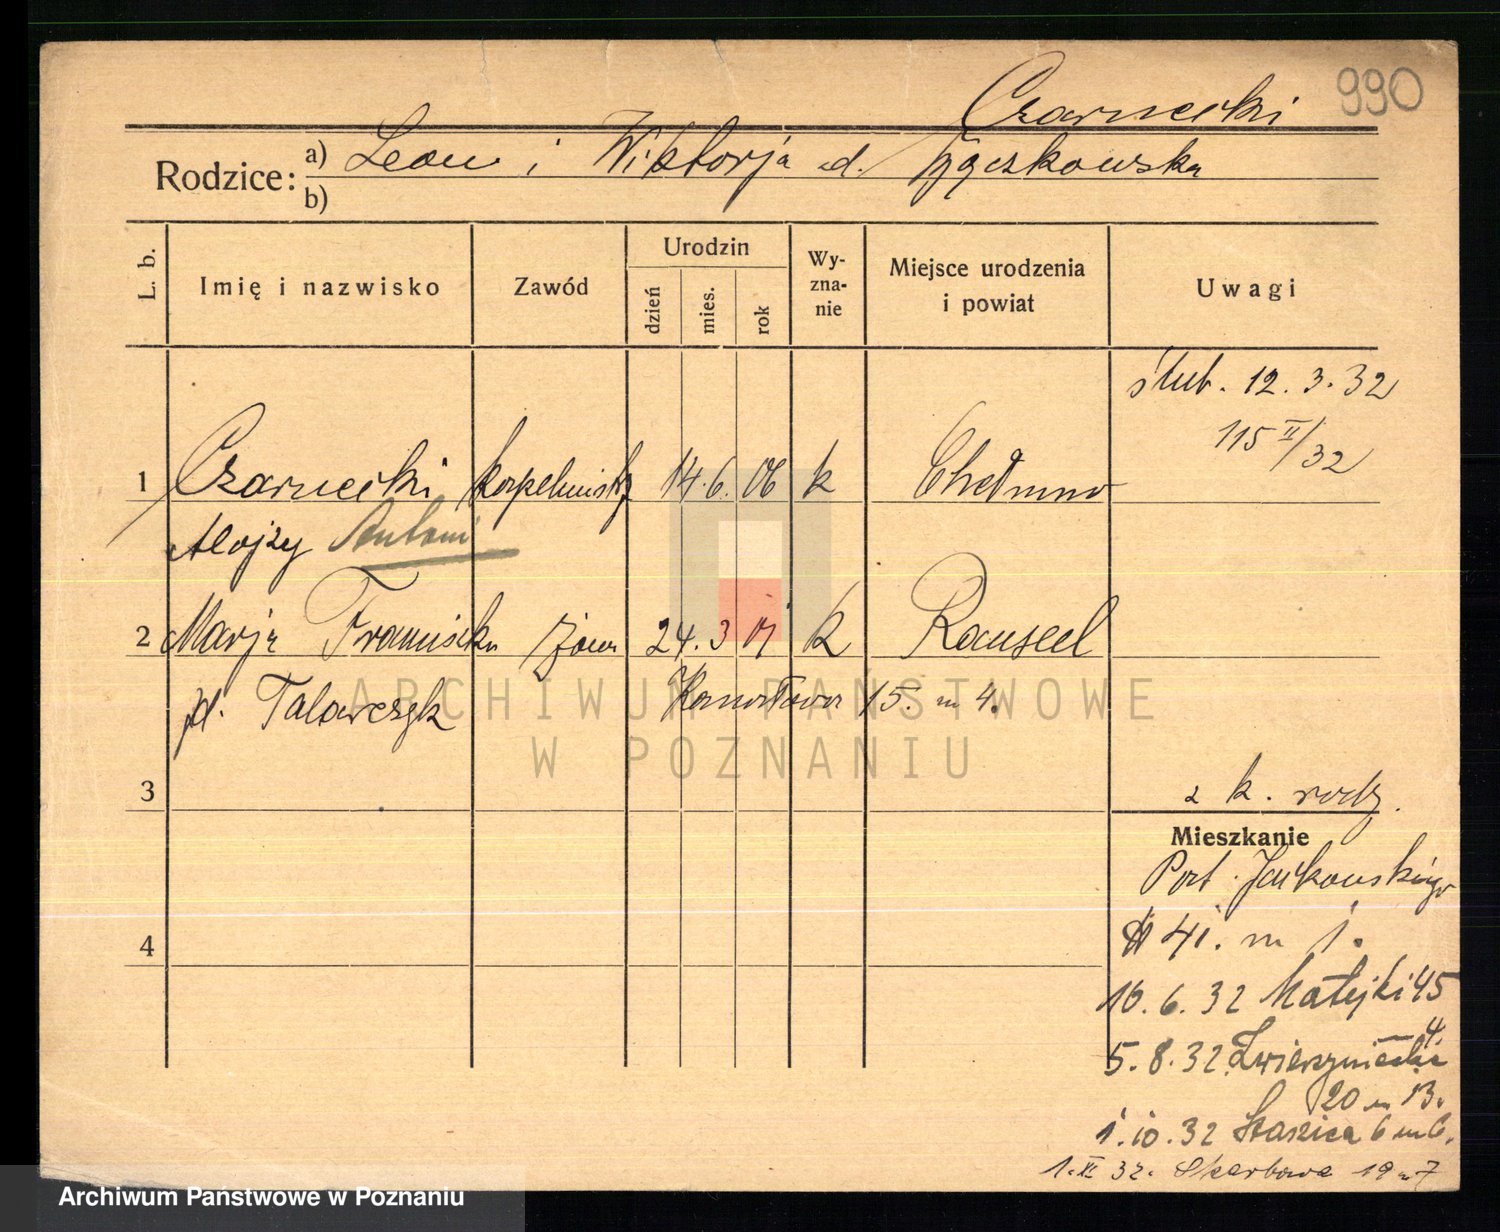 990
Czarnecki
Rodzice: a) Leon i Wiktorja
b)
L. b.
Imię i nazwisko
Zawód
Urodzin
dzień
mies.
rok
Wy-
zna-
nie
Miejsce urodzenia
i powiat
Uwagi
ślub. 12. 3. 32
115 II/32
1 Czarnecki kapelmistrz 14. 6. 06 k Chełmno
Alojzy Antoni
2 Marja Franciszka żona 24. 3 k
Talarczyk 15. m 4.
ARCHIWUM PAŃSTWOWE
W POZNANIU
3
z k. rodz.
Mieszkanie
4
41. m 1.
10. 6. 32 Matejki 45
4.
5. 8. 32 Zwierzyniecka
20 m 13.
1. 10. 32 Staszica 6 m 6.
1. XI 32. Skarbowa 19 m 7
Archiwum Państwowe w Poznaniu